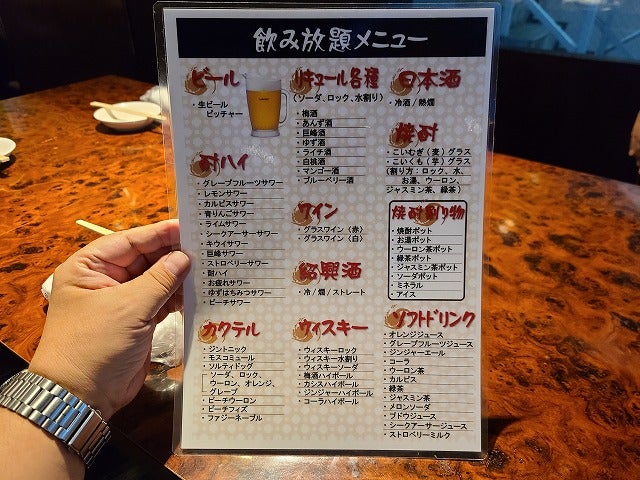 飲み放題メニュー
ビール
・生ビール
ピッチャー
酎ハイ
・グレープフルーツサワー
・レモンサワー
・カルピスサワー
・青りんごサワー
・ライムサワー
・シークアーサーサワー
・キウイサワー
・巨峰サワー
・ストロベリーサワー
・酎ハイ
・お疲れサワー
・ゆずはちみつサワー
・ピーチサワー
カクテル
・ジントニック
・モスコミュール
・ソルティドッグ
ソーダ、ロック、
ウーロン、オレンジ、
グレープ
・ピーチウーロン
・ピーチフィズ
・ファジーネーブル
リキュール各種
(ソーダ、ロック、水割り)
・梅酒
・あんず酒
・巨峰酒
・ゆず酒
・ライチ酒
・白桃酒
・マンゴー酒
・ブルーベリー酒
ワイン
・グラスワイン (赤)
・グラスワイン (白)
紹興酒
・冷/燗/ストレート
ウィスキー
・ウィスキーロック
・ウィスキー水割り
・ウィスキーソーダ
・梅酒ハイボール
・カシスハイボール
・ジンジャーハイボール
・コーラハイボール
日本酒
・冷酒/熱燗
焼酎
・こいむぎ (麦) グラス
・こいくも (芋) グラス
(割り方:ロック、水、
お湯、ウーロン、
ジャスミン茶、緑茶)
焼酎割り物
・焼酎ボトル
・お湯ポット
・ウーロン茶ポット
・緑茶ポット
・ジャスミン茶ポット
・ソーダポット
・ミネラル
・アイス
ソフトドリンク
・オレンジジュース
・グレープフルーツジュース
・ジンジャーエール
・コーラ
・ウーロン茶
・カルピス
・緑茶
・ジャスミン茶
・メロンソーダ
・ブドウジュース
・シークアーサージュース
・ストロベリーミルク